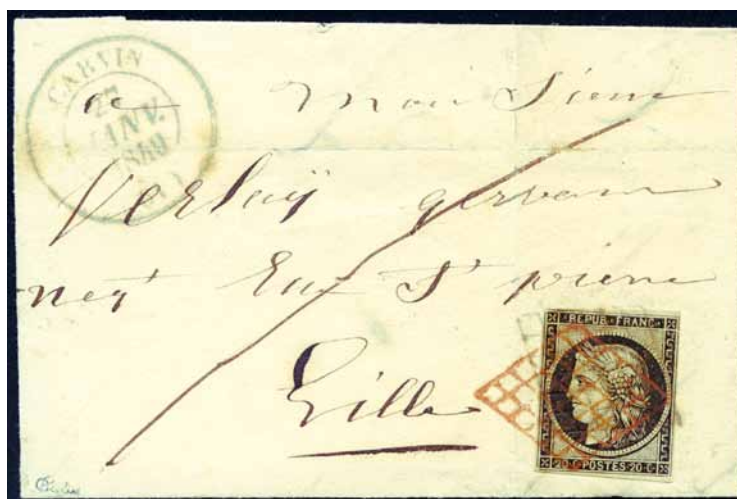 CARVIN
27
JANV.
1849
a Monsieur
Verlay gervain
negt Rue St pierre
Lille
REPUB. FRANC.
20 C POSTES 20 C